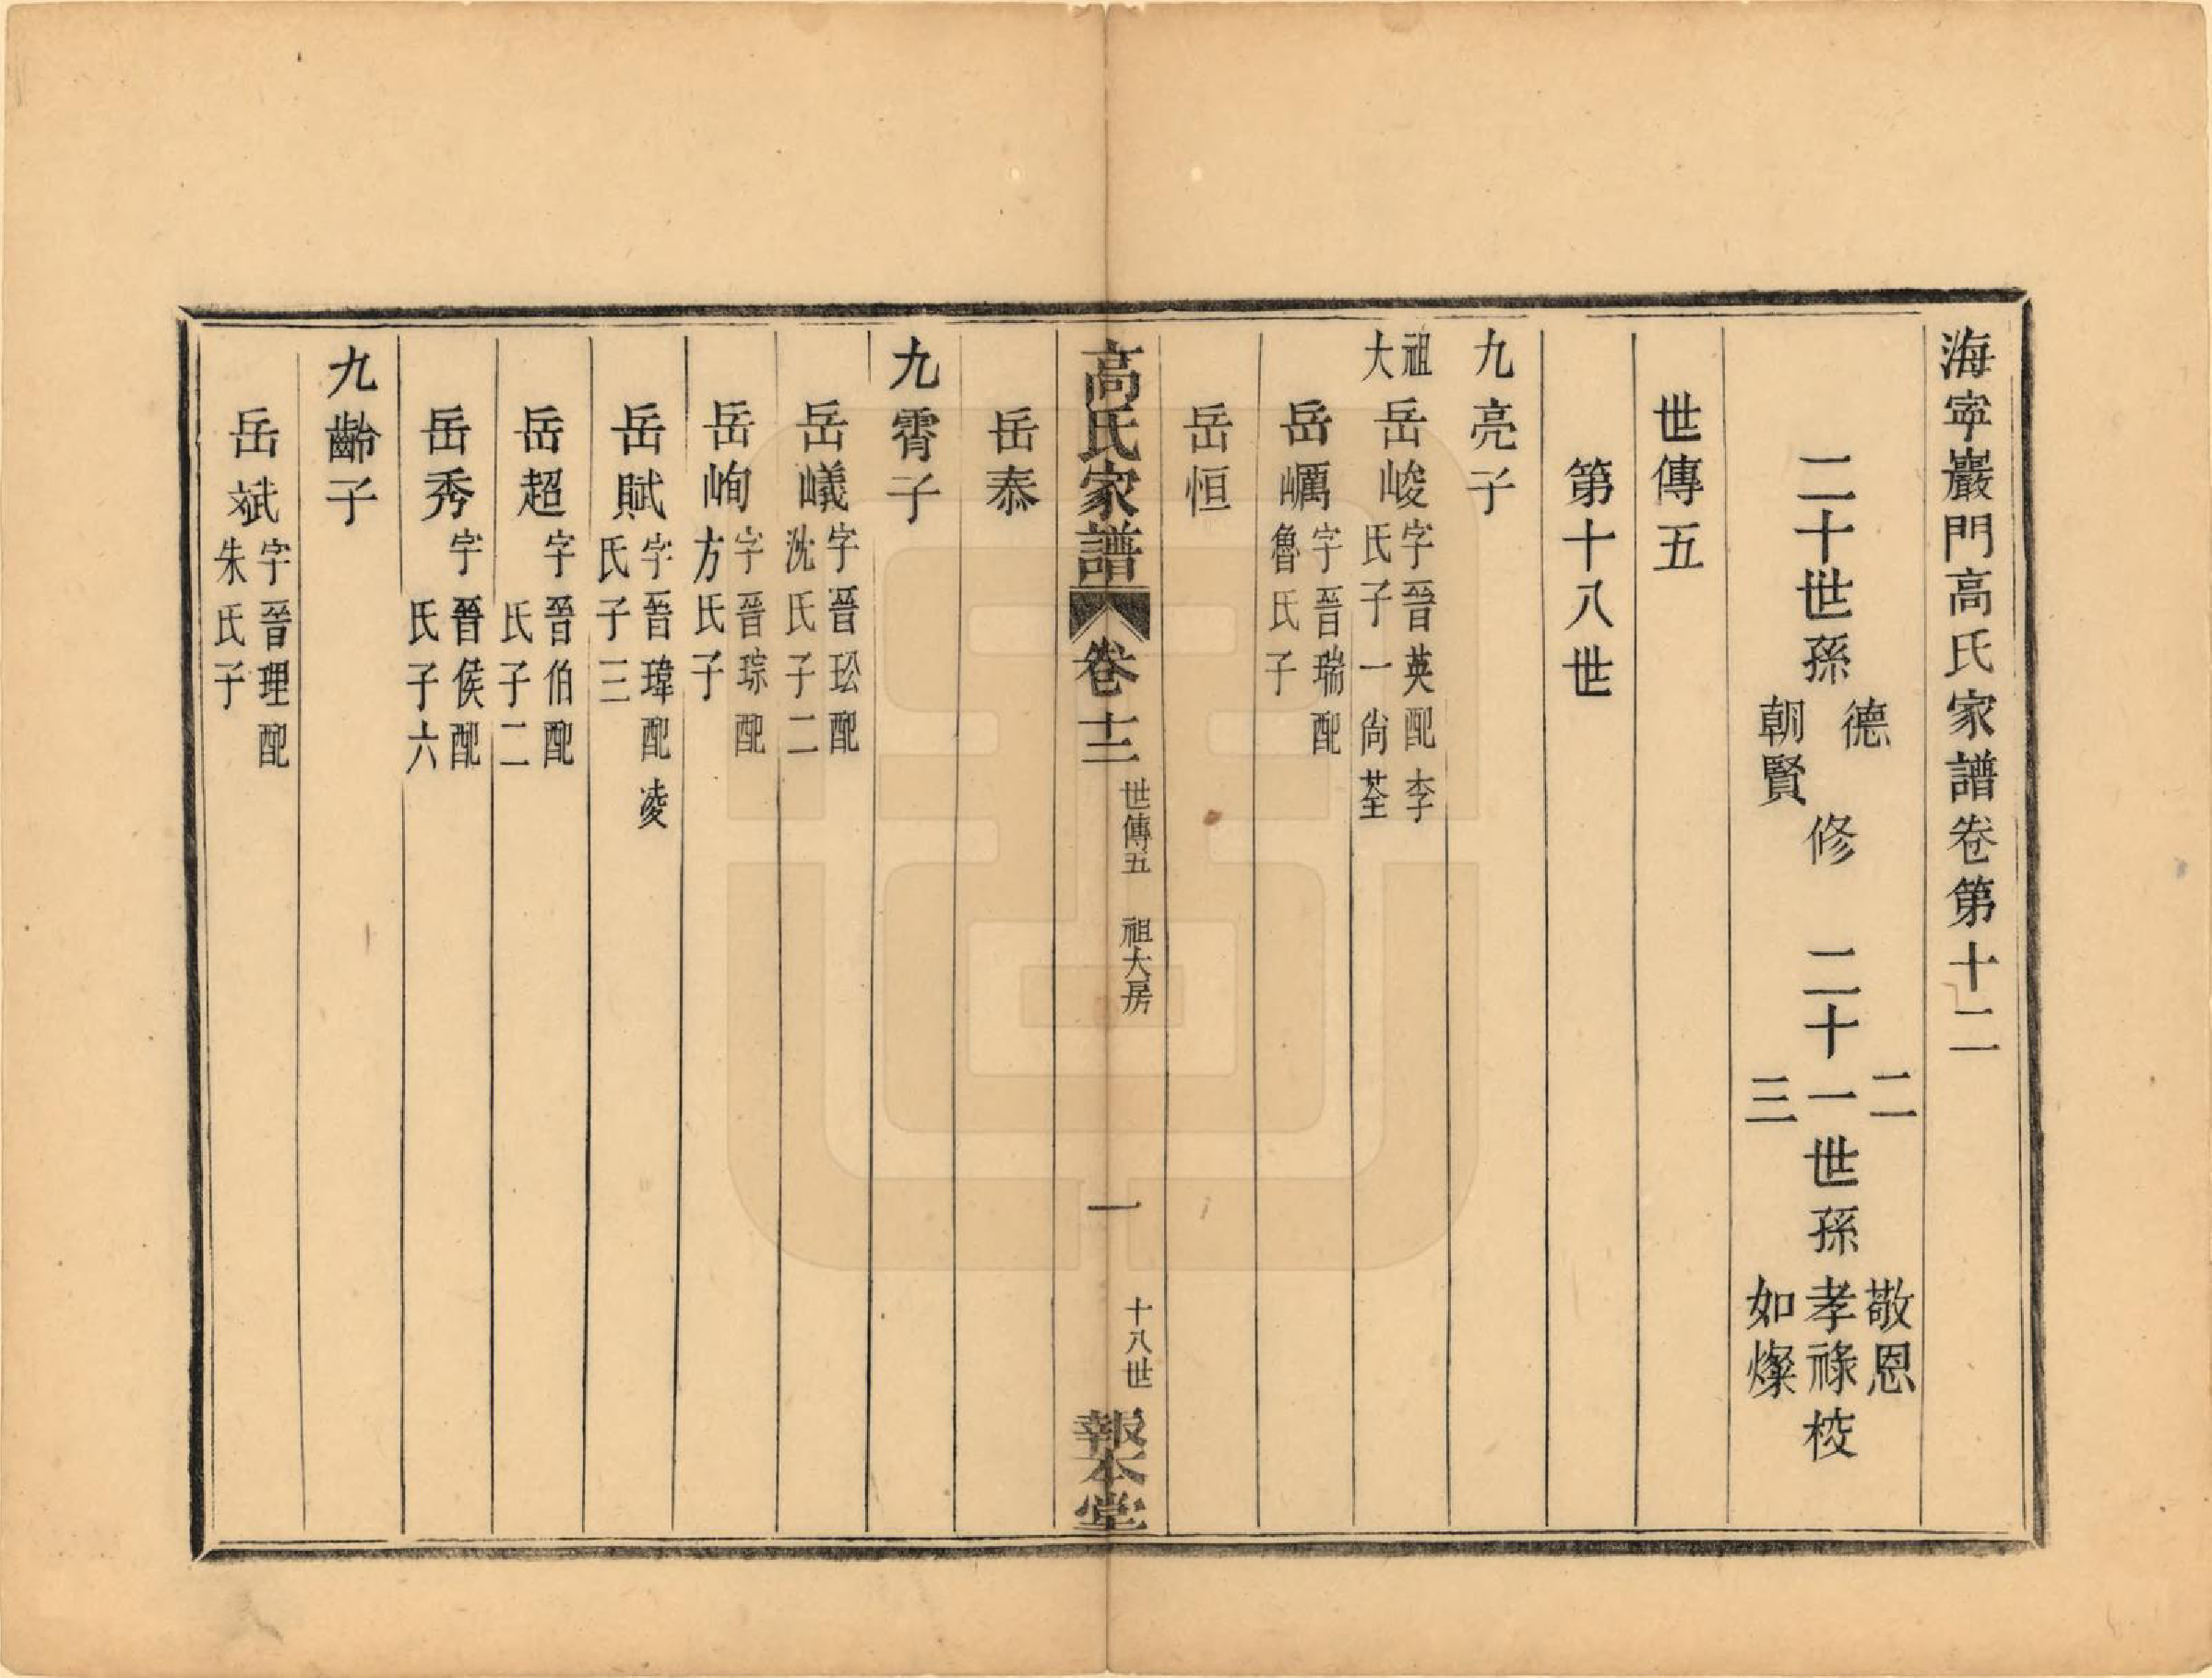 海寧巖門高氏家譜卷第十二
二十世孫 德 朝賢 修 二十 二 一 三 世孫 敬恩 孝祿 如燦 校
世傳五
第十八世
九亮子
祖大 岳峻 字晉英配李氏子一尚荃
岳㘍 字晉瑞配魯氏子
岳恒
高氏家譜 卷十二 世傳五 祖大房 一 十八世 報本堂
岳泰
九霄子
岳嶬 字晉玜配沈氏子二
岳峋 字晉琮配方氏子
岳賦 字晉瑋配凌氏子三
岳超 字晉伯配 氏子二
岳秀 字晉侯配 氏子六
九齡子
岳斌 字晉理配朱氏子